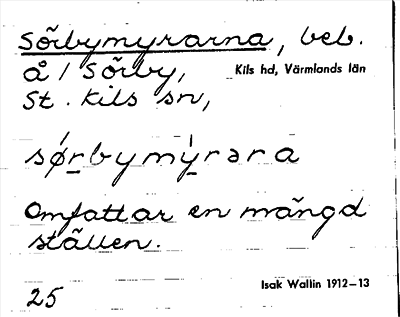 Sörbymyrarna, beb.
å / Sörby, Kils hd, Värmlands län
St. Kils sn,
sǿrbymýrəra
Omfattar en mängd
ställen.
Isak Wallin 1912–13
25